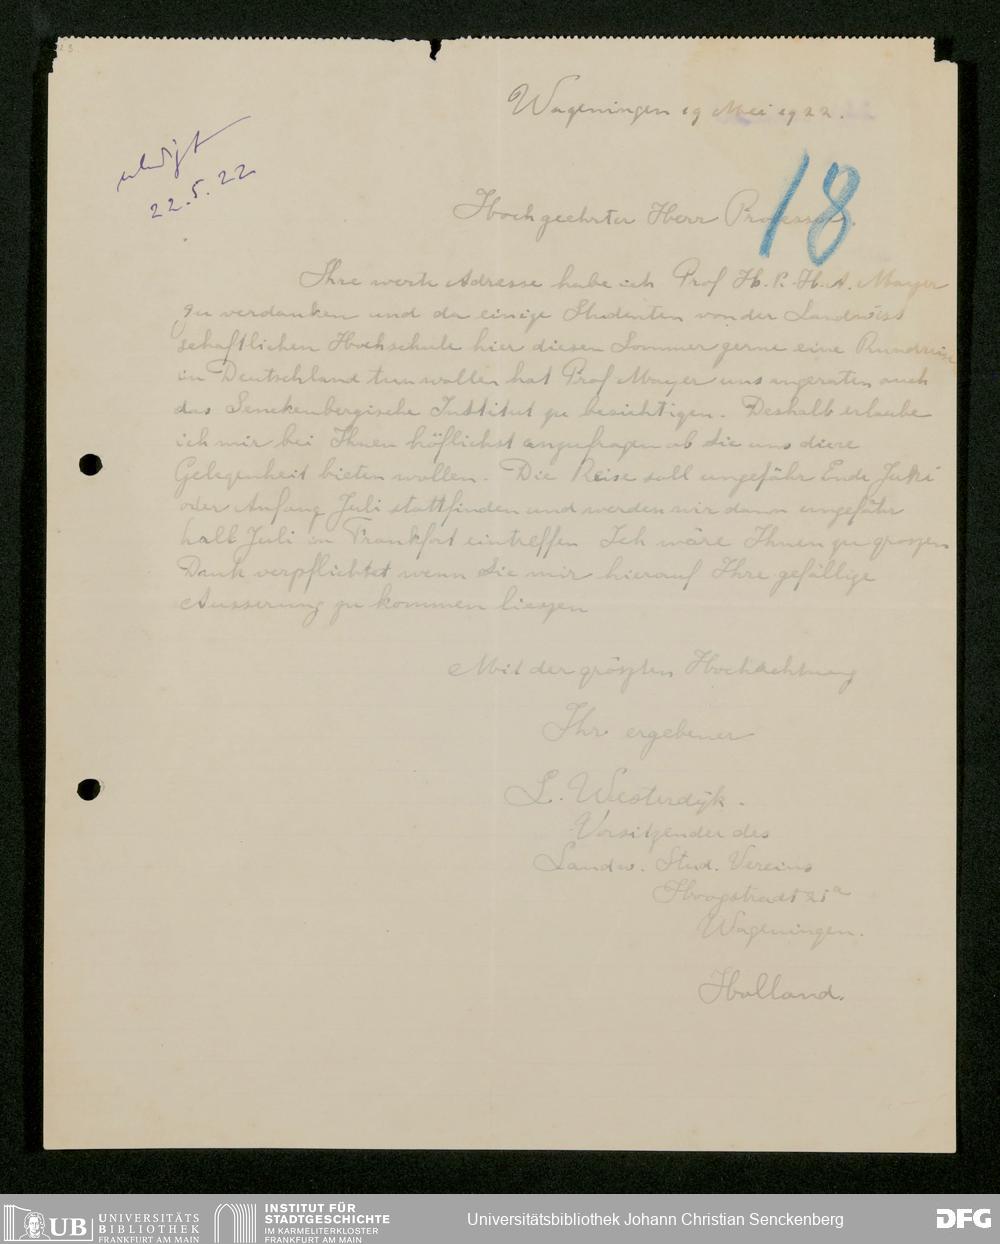 Wageningen 19 Mei 1922.
erledigt
22.5.22
18
Hochgeehrter Herr Professor.
Ihre werte Adresse habe ich Prof H. P. H. A. Mayer
zu verdanken und da einige Studenten von der Landwirt
schaftlichen Hochschule hier diesen Sommer gerne eine Rundreise
in Deutschland tun wollen hat Prof Mayer uns angeraten auch
das Senckenbergische Institut zu besichtigen. Deshalb erlaube
ich mir bei Ihnen höflichst anzufragen ob Sie uns diese
Gelegenheit bieten wollen. Die Reise soll ungefähr Ende Juni
oder Anfang Juli stattfinden und werden wir dann ungefähr
halb Juli in Frankfort eintreffen Ich wäre Ihnen zu groszen
Dank verpflichtet wenn Sie mir hierauf Ihre gefällige
Äusserung zu kommen lieszen
Mit der gröszten Hochachtung
Ihr ergebener
L. Westerdijk.
Vorsitzender des
Landw. Stud. Vereins
Hoogstraat 21a
Wageningen.
Holland.
UB UNIVERSITÄTS
BIBLIOTHEK
FRANKFURT AM MAIN
INSTITUT FÜR
STADTGESCHICHTE
IM KARMELITERKLOSTER
FRANKFURT AM MAIN
Universitätsbibliothek Johann Christian Senckenberg
DFG